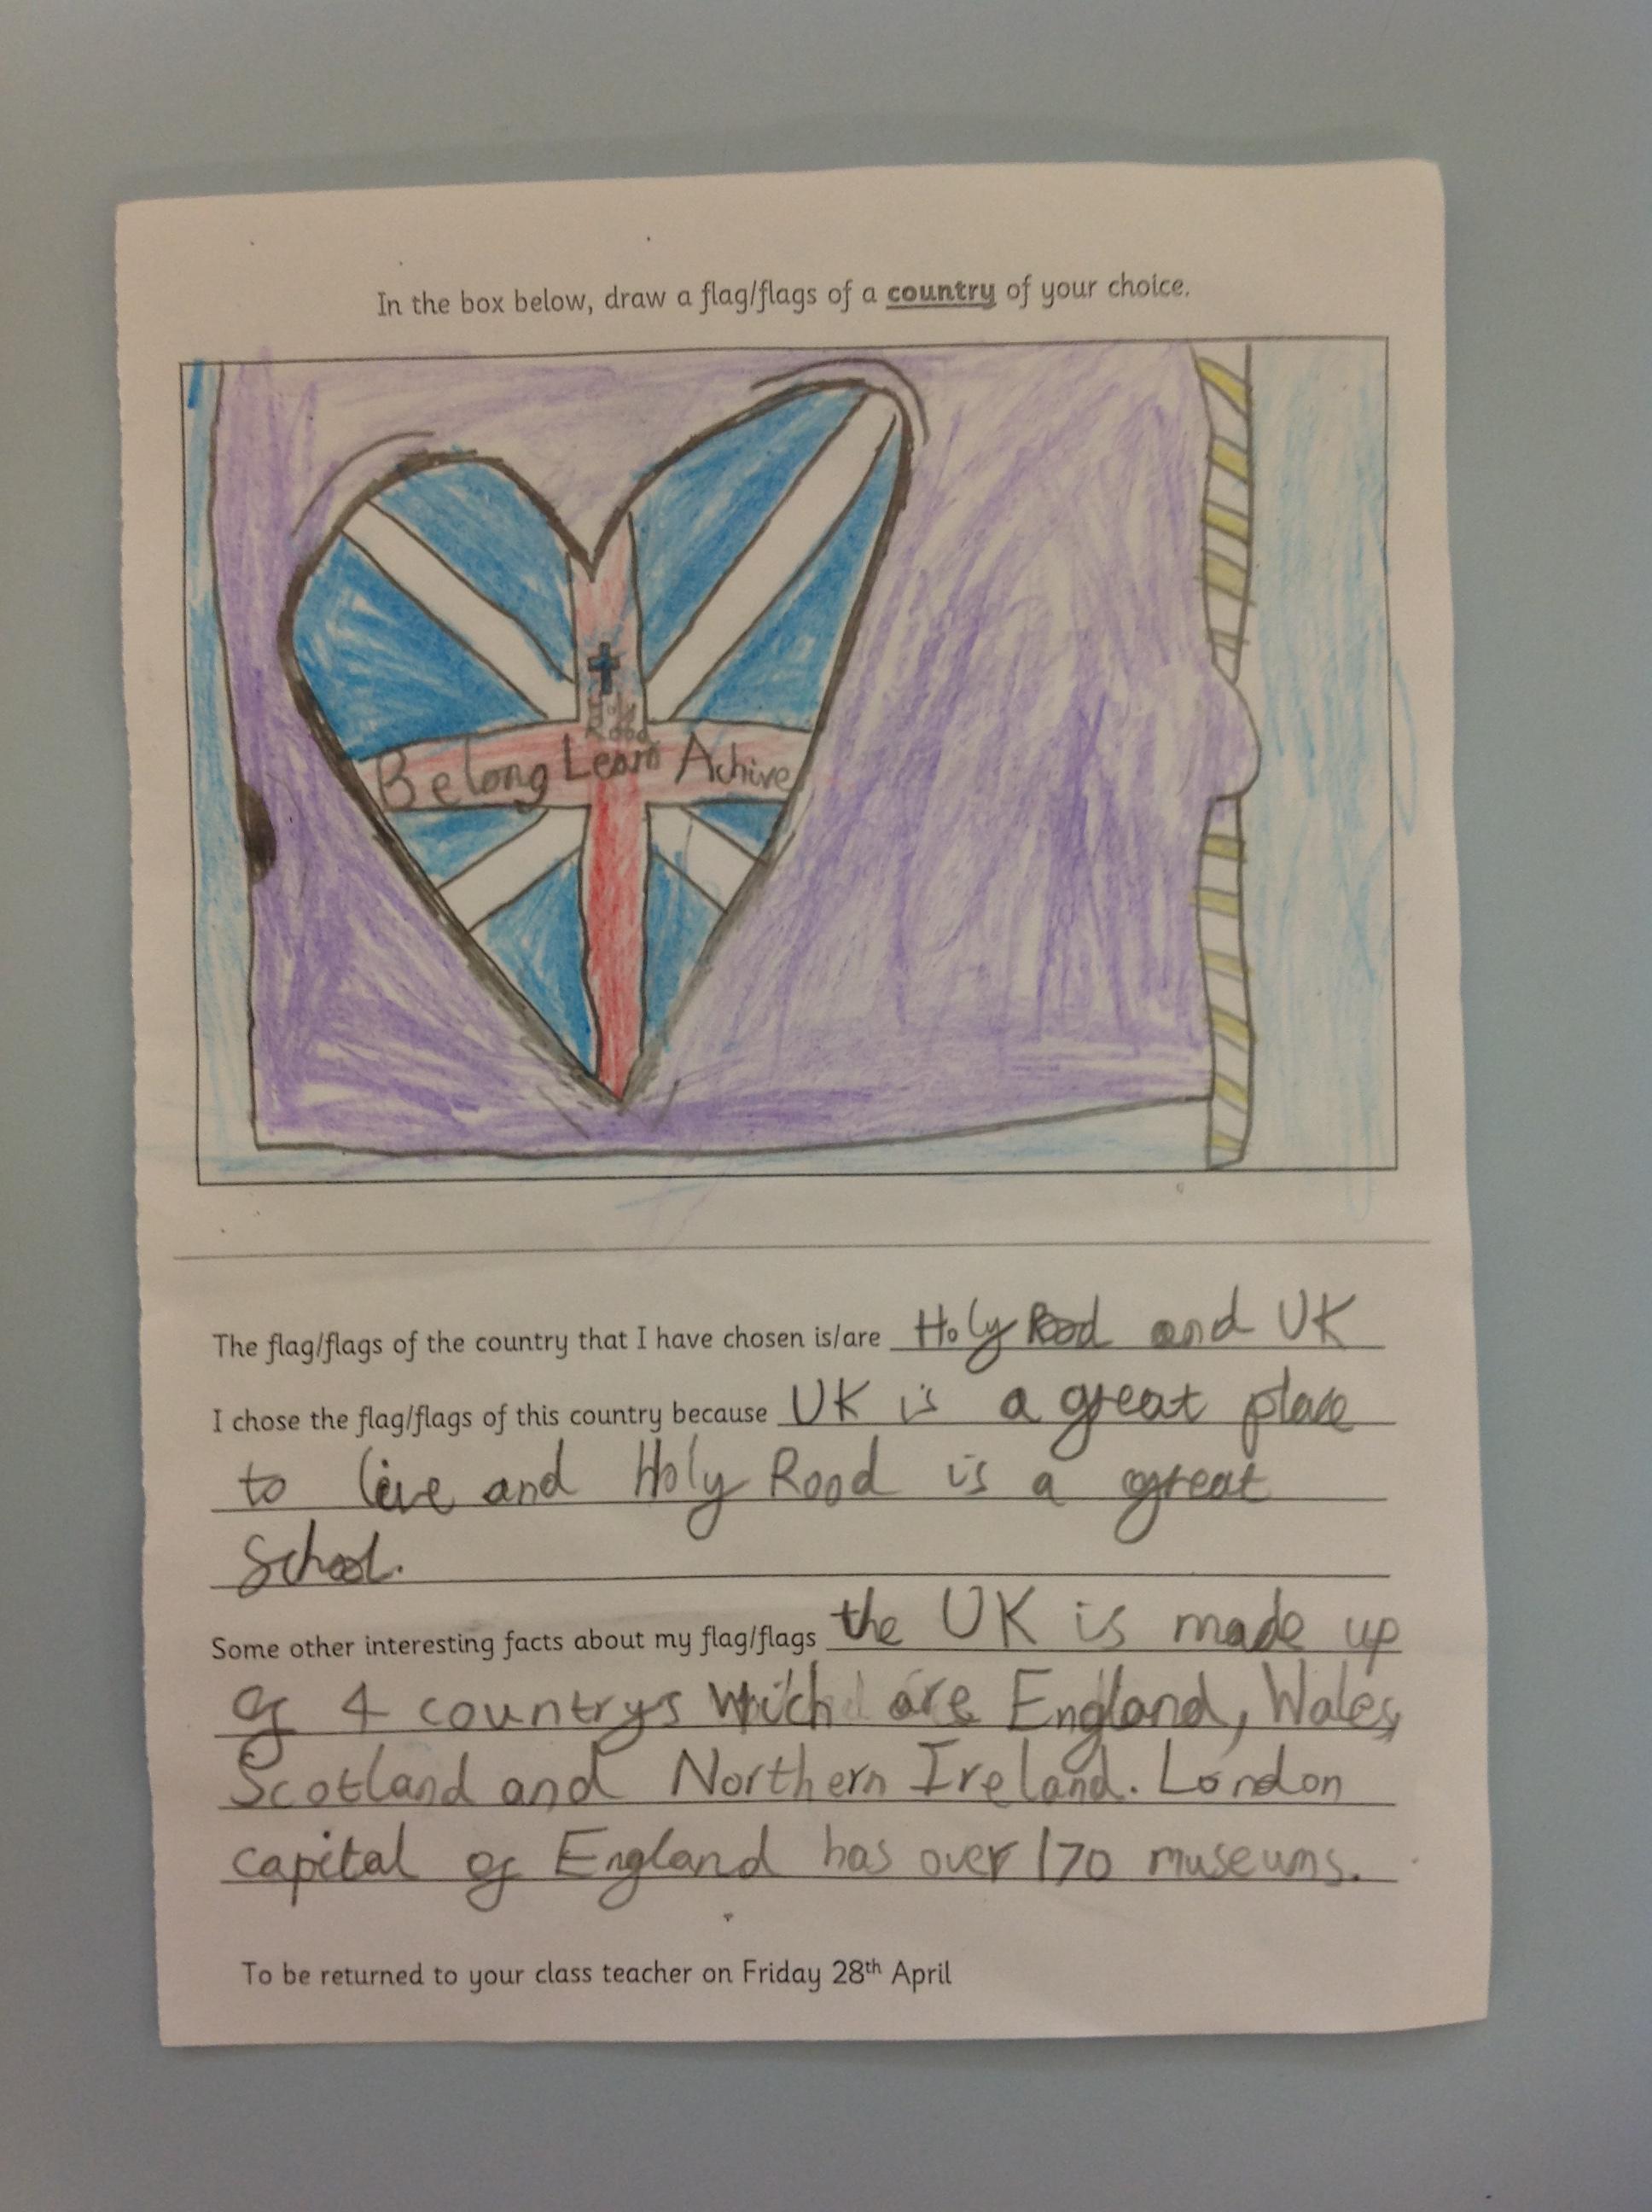 In the box below, draw a flag/flags of a country of your choice.
Holy
Rood
Belong Learn Achive
The flag/flags of the country that I have chosen is/are Holy Rood and UK
I chose the flag/flags of this country because UK is a great place
to live and Holy Rood is a great
School.
Some other interesting facts about my flag/flags the UK is made up
of 4 countrys wich are England, Wales,
Scotland and Northern Ireland. London
capital of England has over 170 museums.
To be returned to your class teacher on Friday 28th April